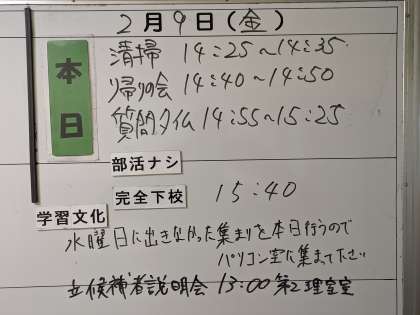 2月9日(金)
本日
清掃 14:25~14:35
帰りの会 14:40~14:50
質問タイム 14:55~15:25
部活ナシ
完全下校 15:40
学習文化
水曜日に出きなかった集まりを本日行うので
パソコン室に集まて下さい
立候補者説明会 13:00 第2理室室